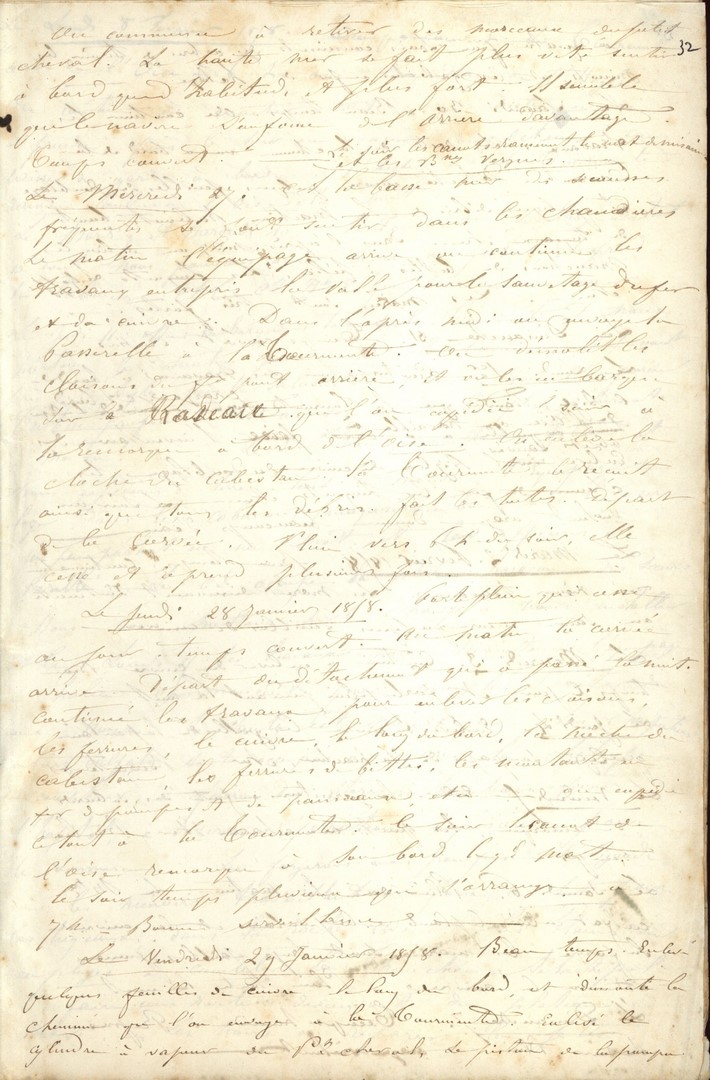 32
On commence à retirer des morceaux du petit
cheval. La haute mer se fait plus vite sentir
à bord que d'habitude et plus fort. Il semble
que le navire s'enfonce de l'arrière davantage.
Temps couvert.
et les vergues
Le Mercredi 27. La basse mer des secousses
fréquentes se font sentir dans les chaudières
Le matin l'équipage arrive on continue les
travaux entrepris la veille pour le sauvetage du fer
et du cuivre. Dans l'après midi on envoye la
Passerelle à la Tourmente. On démolit les
cloisons du pont arrière, et on les embarque
sur le Radeau que l'on expédie le soir à
la remorque à bord de l'Oise. On enlève la
cloche du cabestan. La Tourmente le reçoit
ainsi que tous les débris fait
Départ
de la Corvée. Pluie vers 6 h du soir, elle
cesse et reprend plusieurs fois.
Le Jeudi 28 Janvier 1858. Forte pluie qui cesse
au jour temps couvert. Au matin la corvée
arrive Départ du détachement qui a passé la nuit.
continué les travaux pour enlever les cloisons,
les ferrures, le cuivre, le long du bord, la mèche du
cabestan, les ferrures de bittes, les montants en
fer de pompes et de panneaux, et on expédie
le tout à la Tourmente. Le soir le canot de
l'Oise remorque à son bord le mât.
Le soir temps pluvieux qui s'arrange à
7h Bonne surveillance
Le Vendredi 29 Janvier 1858. Beau temps. Enlevé
quelques feuilles de cuivre le long du bord, et démonté la
cheminée que l'on envoye à la Tourmente. Enlevé le
cylindre à vapeur du Pt cheval, le piston de la pompe